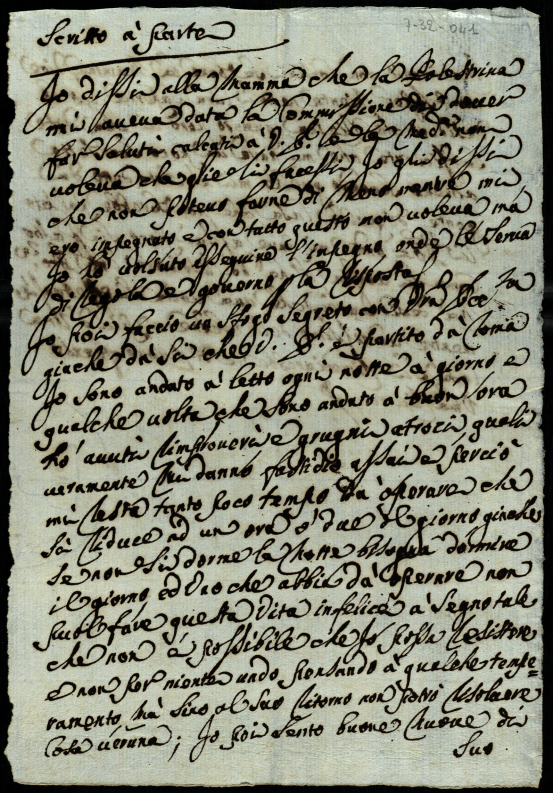 7-32-041
Scritto à parte
Io dissi alla Mamma che la Palestrina
mi aveva data la Commissione di dover
far saluti calcati à V. S. e la Med.ª non
voleva che glie li facessi, Io gli dissi
che non potevo farne di meno mentre mi
ero impegnato e con tutto questo non voleva ma
Io hò volsuto esseguire l'impegno onde le serva
di Regola e governo la Risposta
Io poi faccio un sfogo segreto con
giache dà Si che V. S. è partito dà Roma
Io sono andato à letto ogni notte à giorno e
qualche volta che sono andato à buon'ora
hò avuti rimproveri e grugni atroci quali
veramente Mi danno fastidio assai e perciò
mi Resta tanto poco tempo dà operare che
si Riduce ad un ora ò due il giorno giache
se non si dorme la Notte bisogna dormire
il giorno ed Uno che abbia dà operare non
puol fare questa Vita infelice à segno tale
che non è possibile che Io possa Resistere
e non per niente vado pensando à qualche tempe=
ramento, mà sino al suo Ritorno non potrò Risolvere
Cosa veruna; Io poi sento buone Nuove di
Suo